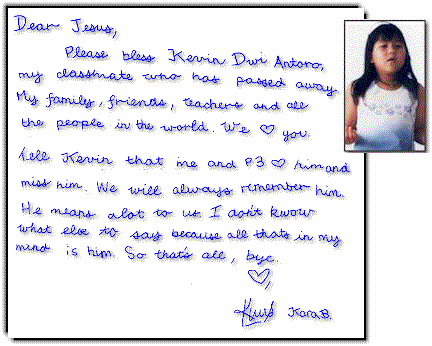 Dear Jesus,
Please bless Kevin Dwi Antoro,
my classmate who has passed away
My family, friends, teachers and all
the people in the world. We ♡ you.
Tell Kevin that me and P3 ♡ him and
miss him. We will always remember him.
He means alot to us I don't kwow
what else to say because all thats in my
mind is him. So that's all, bye.
♡,
Kara B.